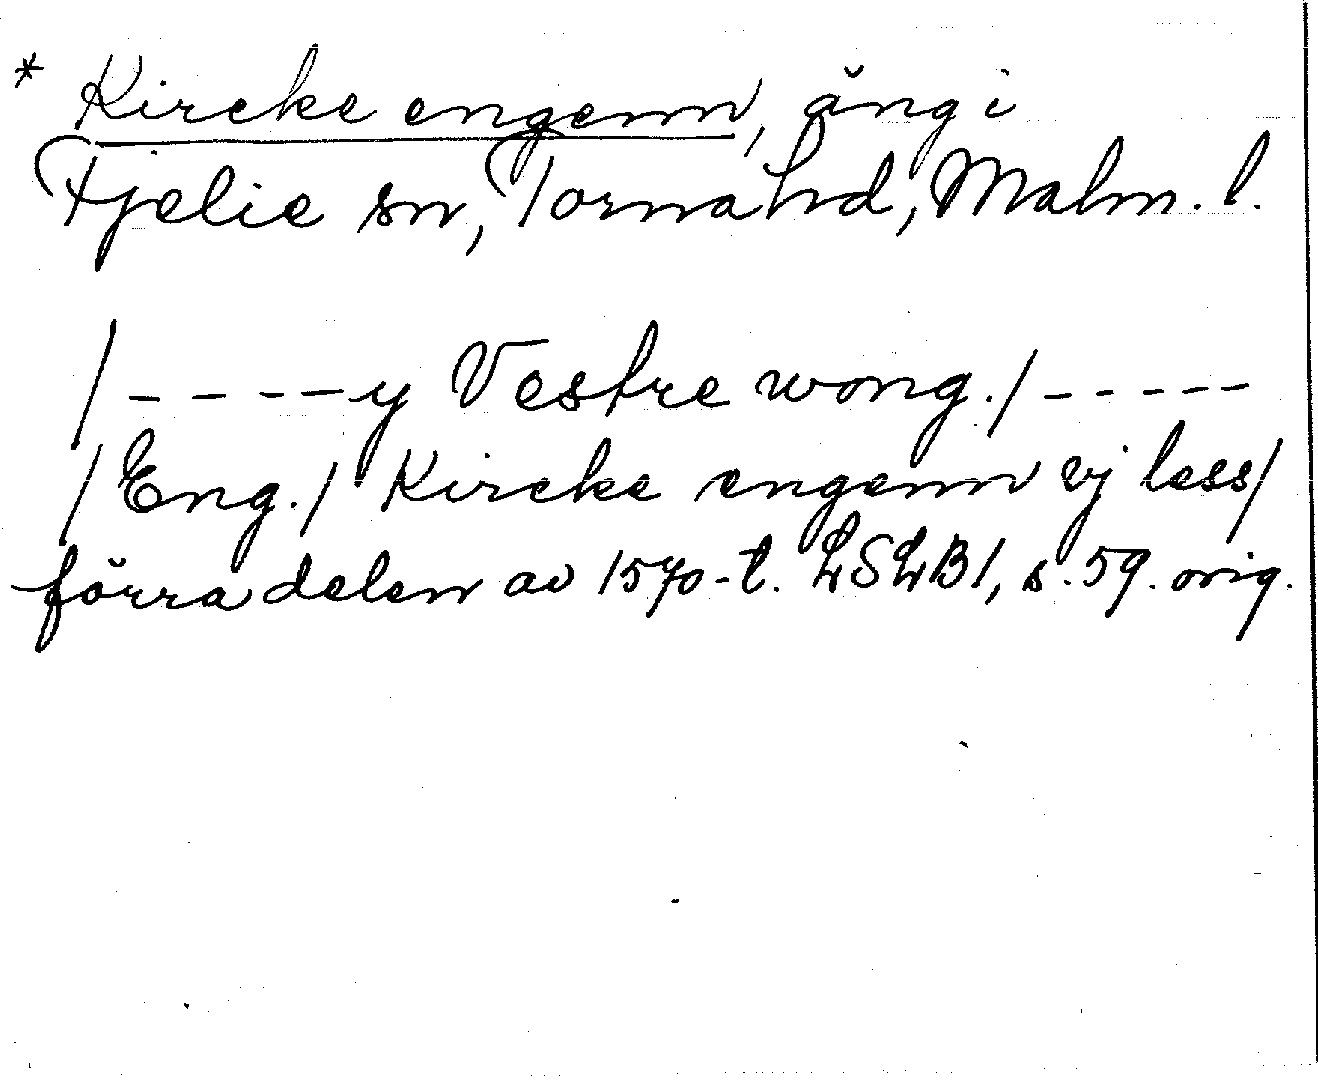 * Kircke engenn, äng i
Fjelie sn, Torna hd, Malm. l.
/-----y Vestre wong./-----
/Eng./ Kircke engenn vj less/
förra delen av 1570-t. LSLB1, s. 59. orig.